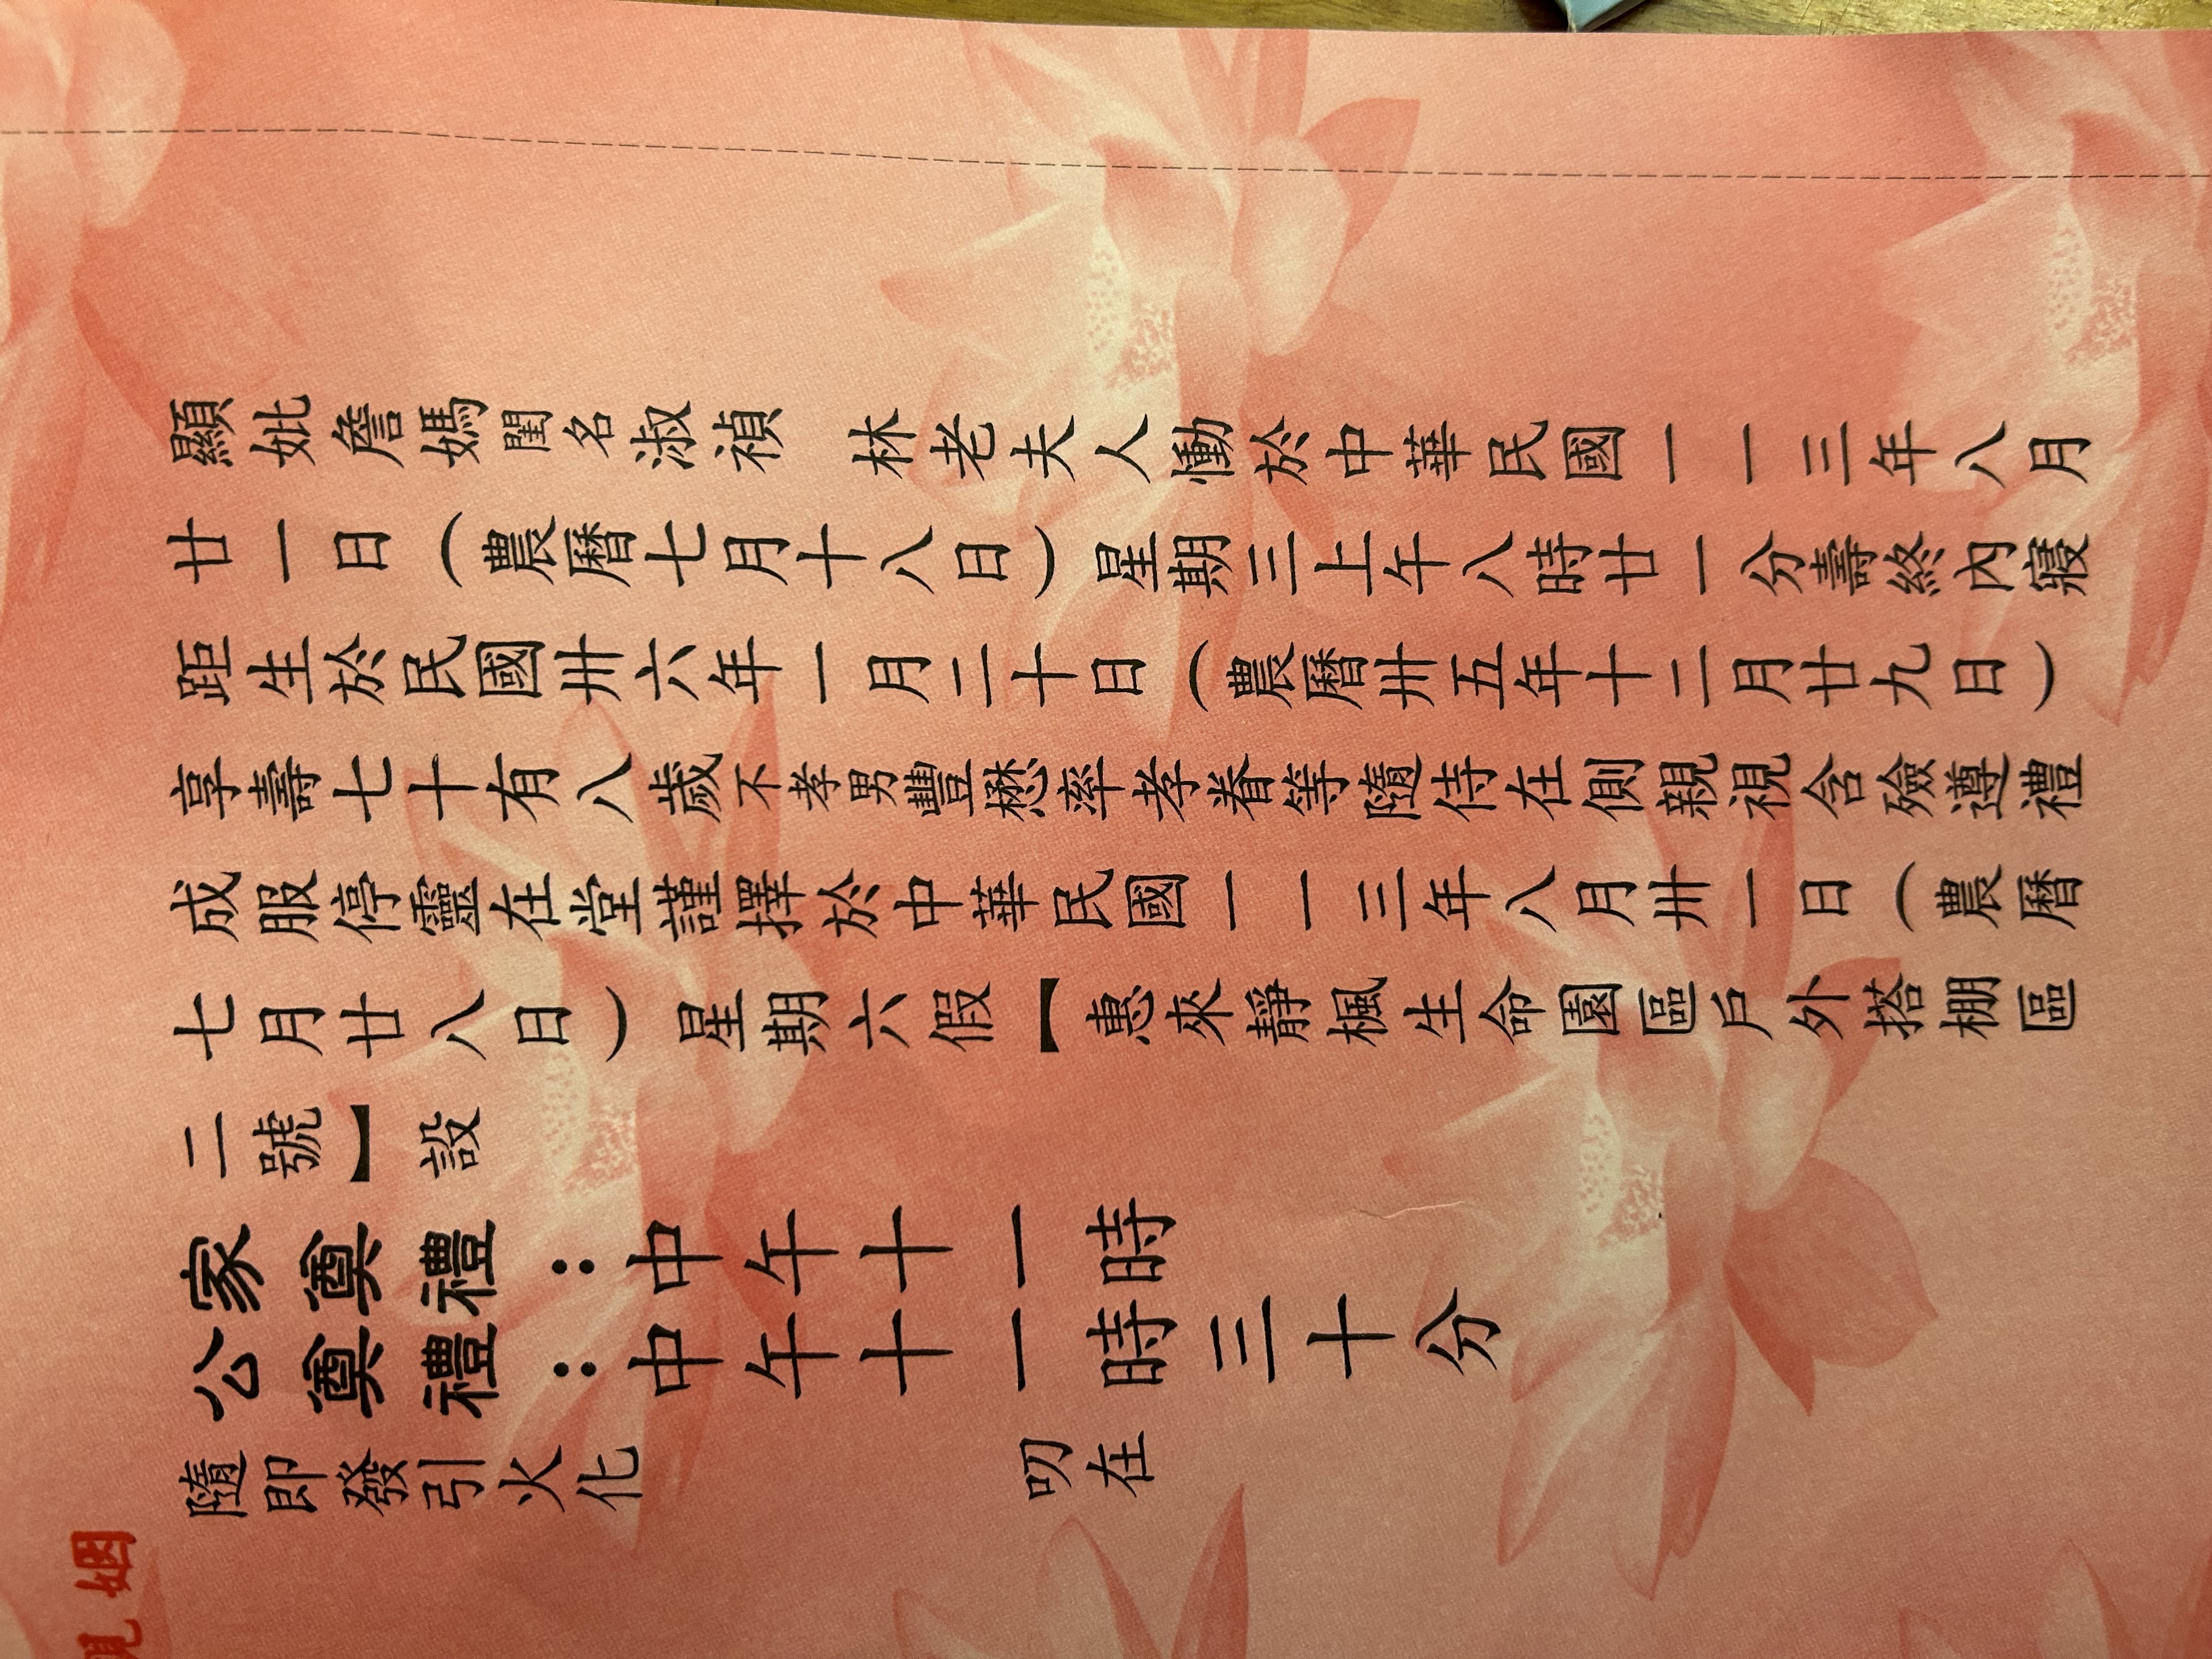 顯妣詹媽閨名淑禎　林老夫人慟於中華民國一一三年八月
廿一日（農曆七月十八日）星期三上午八時廿一分壽終內寢
距生於民國卅六年一月二十日（農曆卅五年十二月廿九日）
享壽七十有八歲不孝男豐懋率孝眷等隨侍在側親視含殮遵禮
成服停靈在堂謹擇於中華民國一一三年八月卅一日（農曆
七月廿八日）星期六假【惠來靜楓生命園區戶外搭棚區
二號】設
家奠禮：中午十一時
公奠禮：中午十一時三十分
隨即發引火化　　　　　叨在
姻